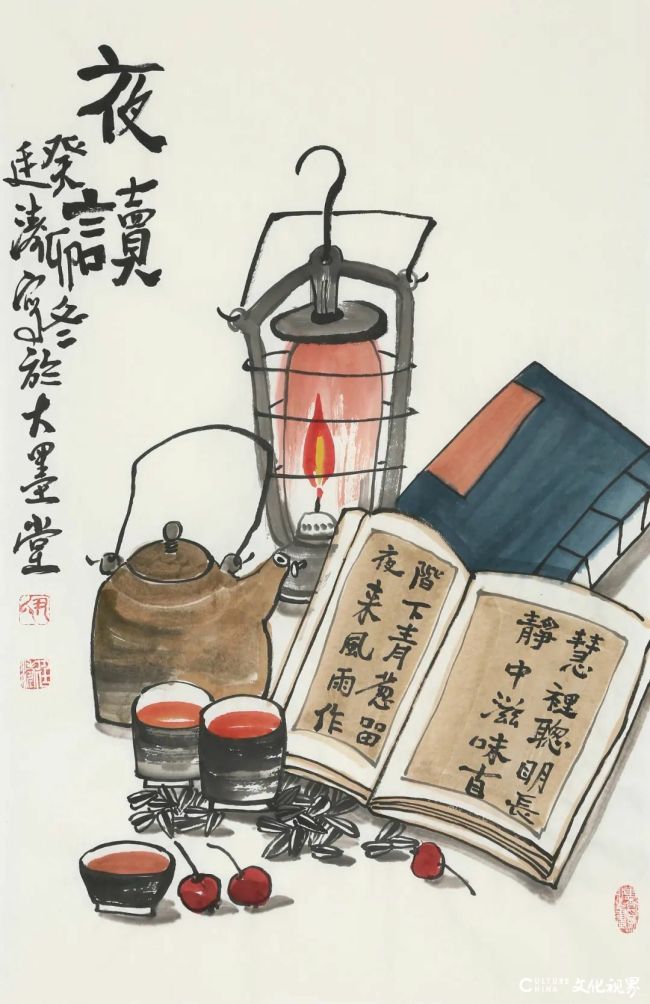 夜讀
癸卯冬
廷濤寫於大墨堂
慧裡聰明長
靜中滋味首
階下青葱留
夜来風雨作
CULTURE CHINA 文化视界